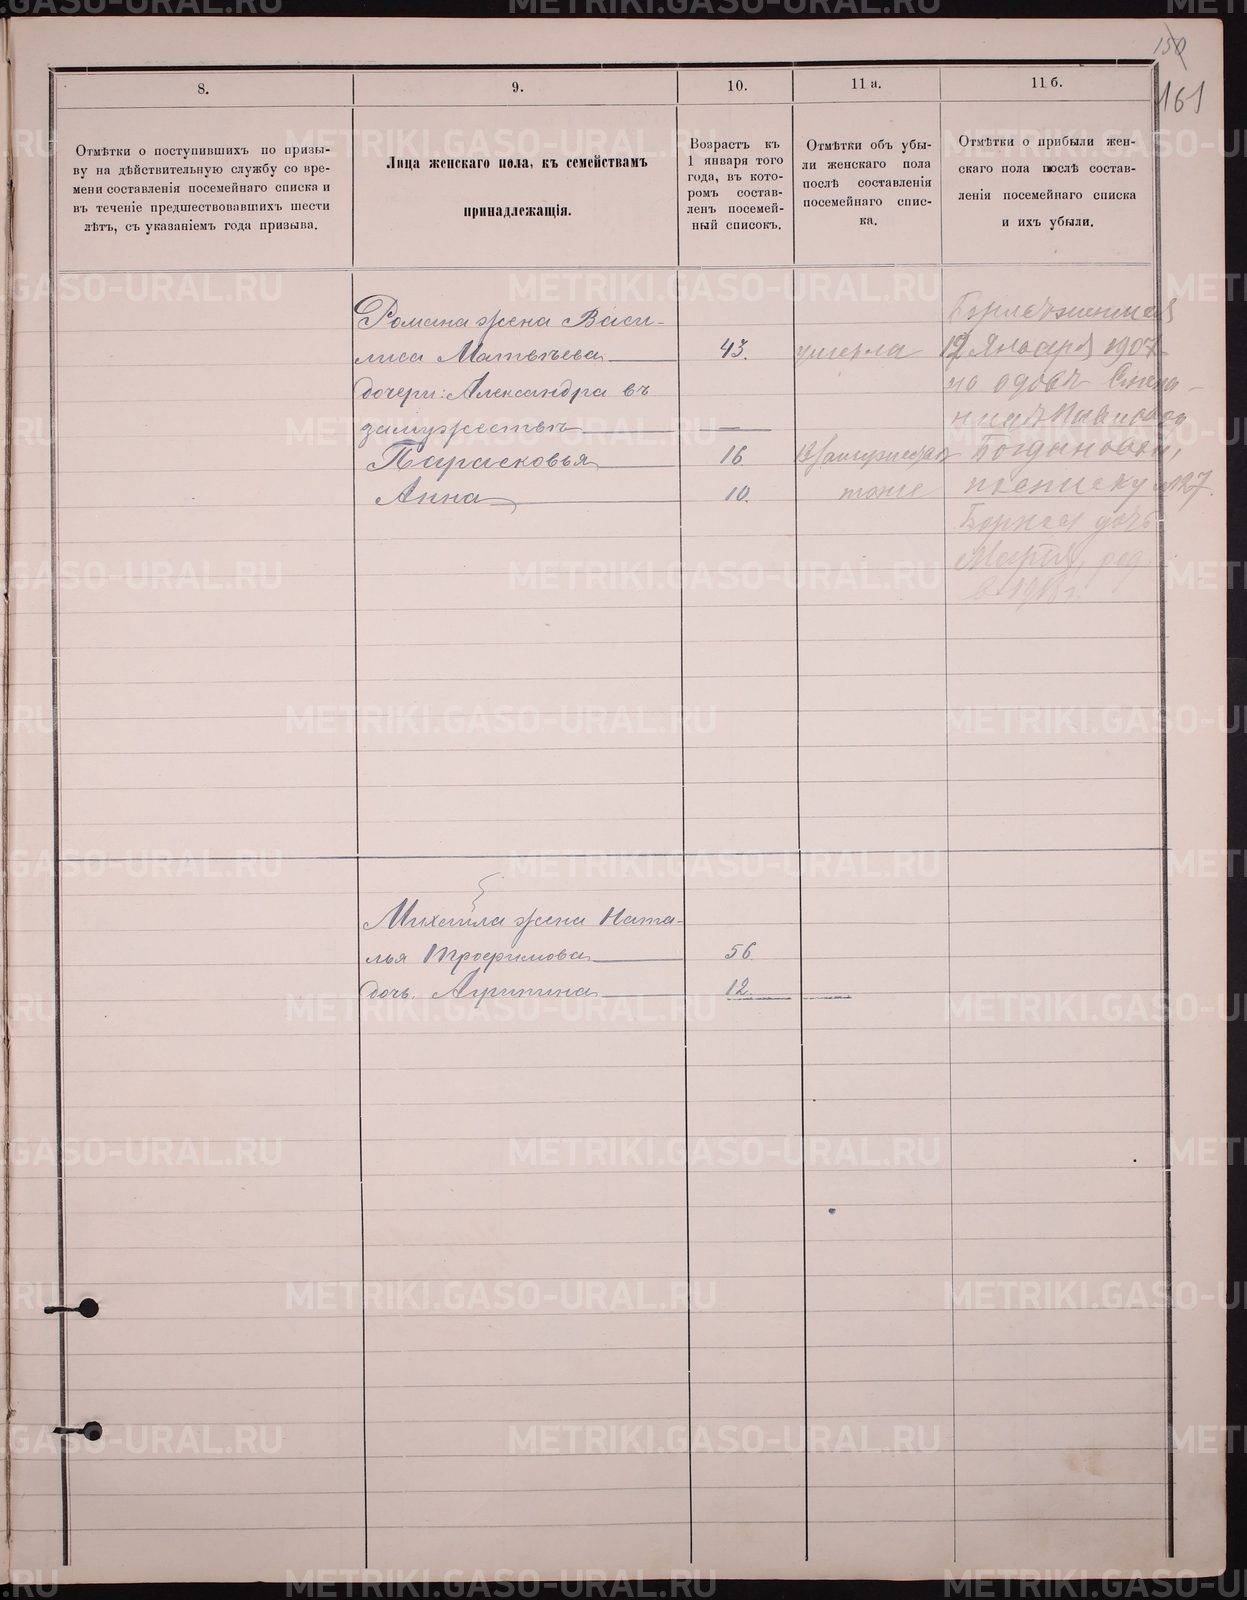 150
161
8.
9.
10.
11 а.
11 б.
Отмѣтки о поступившихъ по призы-
ву на дѣйствительную службу со вре-
мени составленія посемейнаго списка и
въ теченіе предшествовавшихъ шести
лѣтъ, съ указаніемъ года призыва.
Лица женскаго пола, къ семействамъ
принадлежащія.
Возрастъ къ
1 января того
года, въ кото-
ромъ состав-
ленъ посемей-
ный списокъ.
Отмѣтки объ убы-
ли женскаго пола
послѣ составленія
посемейнаго спис-
ка.
Отмѣтки о прибыли жен-
скаго пола послѣ состав-
ленія посемейнаго списка
и ихъ убыли.
Романа жена Васи-
лиса Матвѣева 43. умерла
дочери: Александра въ
замужествѣ —
Парасковья 16
Анна 10. тоже
12 Января 1907
Богдановой,
№ 27.
дочь
Марія, род.
Михаила жена Ната-
лья Трофимова 56
дочь. Агрипина 12.
METRIKI.GASO-URAL.RU